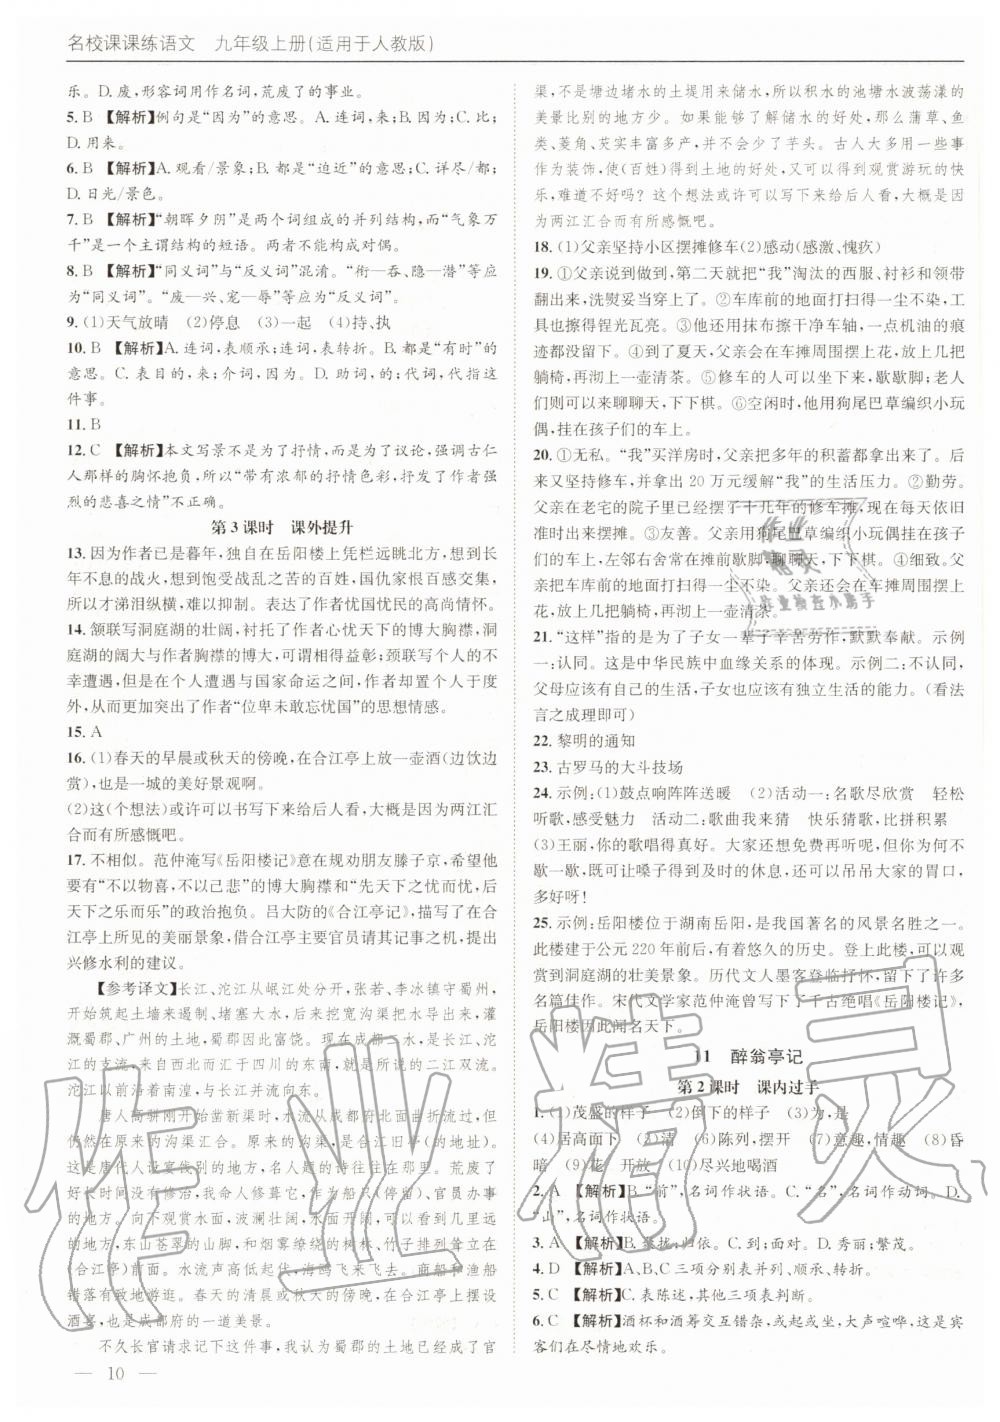 名校课课练语文　九年级上册(适用于人教版)
乐。D.废,形容词用作名词,荒废了的事业。
5. B 【解析】例句是“因为”的意思。A.连词,来;B.因为;C.比;
D.用来。
6. B 【解析】A.观看/景象;B.都是“迫近”的意思;C.详尽/都;
D.日光/景色。
7. B 【解析】“朝晖夕阴”是两个词组成的并列结构,而“气象万
千”是一个主谓结构的短语。两者不能构成对偶。
8. B 【解析】“同义词”与“反义词”混淆。“衔—吞、隐—潜”等应
为“同义词”。“废—兴、宠—辱”等应为“反义词”。
9. (1)天气放晴　(2)停息　(3)一起　(4)持、执
10. B 【解析】A.连词,表顺承;连词,表转折。B.都是“有时”的意
思。C.表目的,来;介词,因为。D.助词,的;代词,代指这
件事。
11. B
12. C 【解析】本文写景不是为了抒情,而是为了议论,强调古仁
人那样的胸怀抱负,所以“带有浓郁的抒情色彩,抒发了作者强
烈的悲喜之情”不正确。
第 3 课时　课外提升
13. 因为作者已是暮年,独自在岳阳楼上凭栏远眺北方,想到长
年不息的战火,想到饱受战乱之苦的百姓,国仇家恨百感交集,
所以才涕泪纵横,难以抑制。表达了作者忧国忧民的思想感情。
14. 颔联写洞庭湖的壮阔,衬托了作者心忧天下的博大胸襟,洞
庭湖的阔大与作者胸襟的博大,可谓相得益彰;颈联写个人的不
幸遭遇,但其中却蕴涵着与国家命运之间,作者却置个人的荣辱
遭遇于度外,从而更突出了作者“位卑未敢忘忧国”的思想情感。
15. A
16. (1)春天的早晨或秋天的傍晚,在合江亭上放一壶酒(边饮边
赏),也是一城的美好景观啊。
(2)这(个想法)或许可以书写下来给后人看,大概是因为两江汇
合而有所感慨吧。
17. 不相似。范仲淹写《岳阳楼记》意在规劝朋友滕子京,希望他
要有“不以物喜,不以己悲”的博大胸襟和“先天下之忧而忧,后
天下之乐而乐”的政治抱负。吕大防的《合江亭记》,描写了在合
江亭上所见的美丽景象,借合江亭主要官员请其记事之机,提出
兴修水利的建议。
【参考译文】长江、沱江从岷江处分开,张若、李冰镇守蜀州,
开始筑起土墙来遏制、堵塞大江,用来挖宽小沟渠、多挖水渠,灌
溉蜀郡、广州的郊野,蜀郡因此富饶。现在的沟渠,都是长江、沱
江的支流,来自西北而汇合于四川的东南,然后合为一江。
沱江以前进入成都,南徙流经蜀郡的支流,以便民济。
唐人高骈刚开始凿新渠时,水流从成都府北面曲折向东,
仍然在原来的沟渠汇合。原来的沟渠,是合江旧亭(的地址)。
这是唐代人设宴饯别的地方,名人题的诗往往在亭里。荒废了
好长时间没有修治,我令人修葺了它,作为船只(停留)、官员办事
的地方。向下观赏水面,波澜壮阔,水面平静,是鱼鸟出没
的地方,东山苍翠的山脚和烟雾缭绕的树林、竹子排列营绕在
(合江亭)的前面。水流声高低起伏,海鸥成行飞舞。商船和渔船
错落有致地游逛。春天的清晨或秋天的傍晚,在合江亭上摆设
酒宴,也是成都府的一道美景。
不久长官请求记下这件事,我认为蜀郡的土地已经成了官
渠,不是塘边堵水的土堤用来储水,所以积水的池塘水波荡漾的
美景比别的地方少。如果能够了解储水的好处,那么蒲草、鱼
类、菱角、芡实丰富多产,并且会减少了芋头。古人大多用美景
作为装饰,使(百姓)得到土地的好处,又可以得到观赏游玩的快
乐,难道不好吗?这个想法或许可以写下来给后人看,大概是因
为两江汇合而有所感慨吧。
18. (1)父亲坚持小区摆摊修车(2)感动(感激、愧疚)
19. ①父亲说到做到,第二天就把“我”淘汰的西服、衬衫和领带
翻出来,洗烫得妥妥当当。②车库前的地面打扫得一尘不染,工
具也擦得锃光瓦亮。③他用抹布擦干净车轴,一点机油的痕
迹都没留下。④到了夏天,父亲会在车摊周围摆上花,放上几把
躺椅,再沏上一壶清茶。⑤修车的人可以坐下来,歇歇脚;老人
们则可以来聊聊天,下下棋。⑥空闲时,他用狗尾巴草编织小玩
偶,挂在孩子们的车上。
20. ①无私。“我”买洋房时,父亲把多年的积蓄都拿出来。后
来,父亲又拿出 20 万元缓解“我”的生活压力。②勤劳。
父亲在老宅的院子里已经摆了十几年的修车摊,现在又想在小区
继续摆摊。③友善。父亲用狗尾巴草编织小玩偶,挂在孩子
们的车上,左邻右舍常在摊前歇脚、聊天、下棋。④细致。父亲
把车库前的地面打扫得一尘不染。父亲还会在车摊周围摆上花,
放上几把躺椅,再沏上一壶清茶。
21. “这样”指的是为了子女一辈子辛苦劳作,默默奉献。示例
一:认同。这是中华民族中血缘关系的体现。示例二:不认同,
父母应有自己的生活,子女也应有独立生活的能力。(看法
言之成理即可)
22. 黎明的通知
23. 古罗马的大斗技场
24. 示例:(1)鼓点响阵阵送暖　(2)活动一:名歌尽欣赏　轻松
听歌,感受魅力　活动二:歌曲我来猜　快乐猜歌,比拼积累
(3)王丽,你的歌唱得真好。大家还想再听呢,但你为大家不
歇一歇,既可以让嗓子得到及时的休息,还可以吊吊大家的胃口,
多好呀!
25. 示例:岳阳楼位于湖南岳阳,是我国著名的风景名胜之一。
此楼建于公元 220 年前后,有着悠久的历史。登上此楼,可以观
赏到洞庭湖的壮美景象。历代文人墨客登临抒怀,留下了许多
名篇佳作。宋代文学家范仲淹曾为它写下了千古绝唱《岳阳楼记》,
岳阳楼因此闻名天下。
11　醉翁亭记
第 2 课时　课内过手
1. (1)茂盛的样子　(2)倒下的样子　(3)为,是
(4)居高面下　(5)清　(6)陈列,摆开　(7)意趣,情趣　(8)昏
暗　(9)花　开放　(10)尽兴地喝酒
2. A 【解析】B.“前”,名词作状语。C.“名”,名词作动词。D.
“山”,名词作状语。
3. A 【解析】B.攀拔;归依。C.到;面对。D.秀丽;繁茂。
4. D 【解析】A、B、C 三项分别表并列、顺承、转折。
5. C 【解析】C.表陈述,其他三项都表判断。
6. C 【解析】酒杯和酒筹交互错杂,或起或坐,大声喧哗,这是宾
客们在尽情地欢乐。
— 10 —
作业精灵